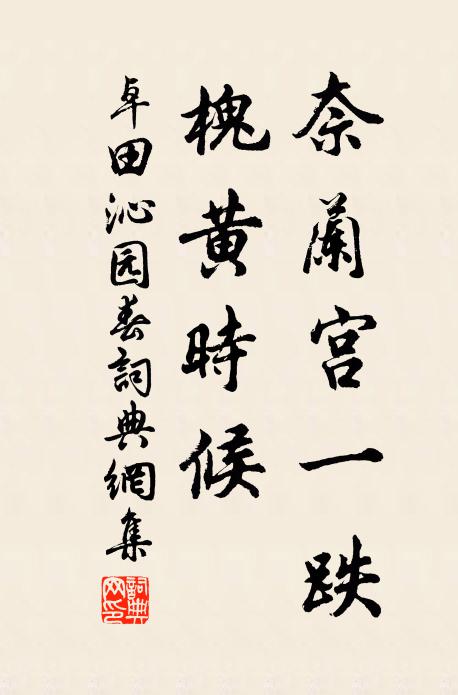 奈蘭宫一跌
槐黄時候
卓田沁园春詞典網集
詞典网印